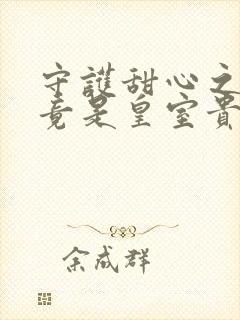 守護甜心之
竟是皇室貴
余成群